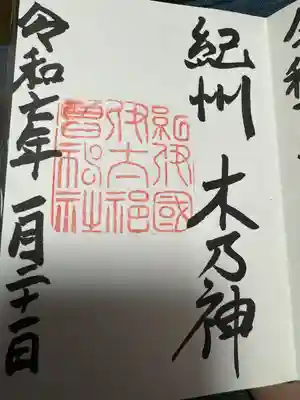 紀州 木乃神
紀伊國
伊太祁
曽神社
令和七年 一月二十一日